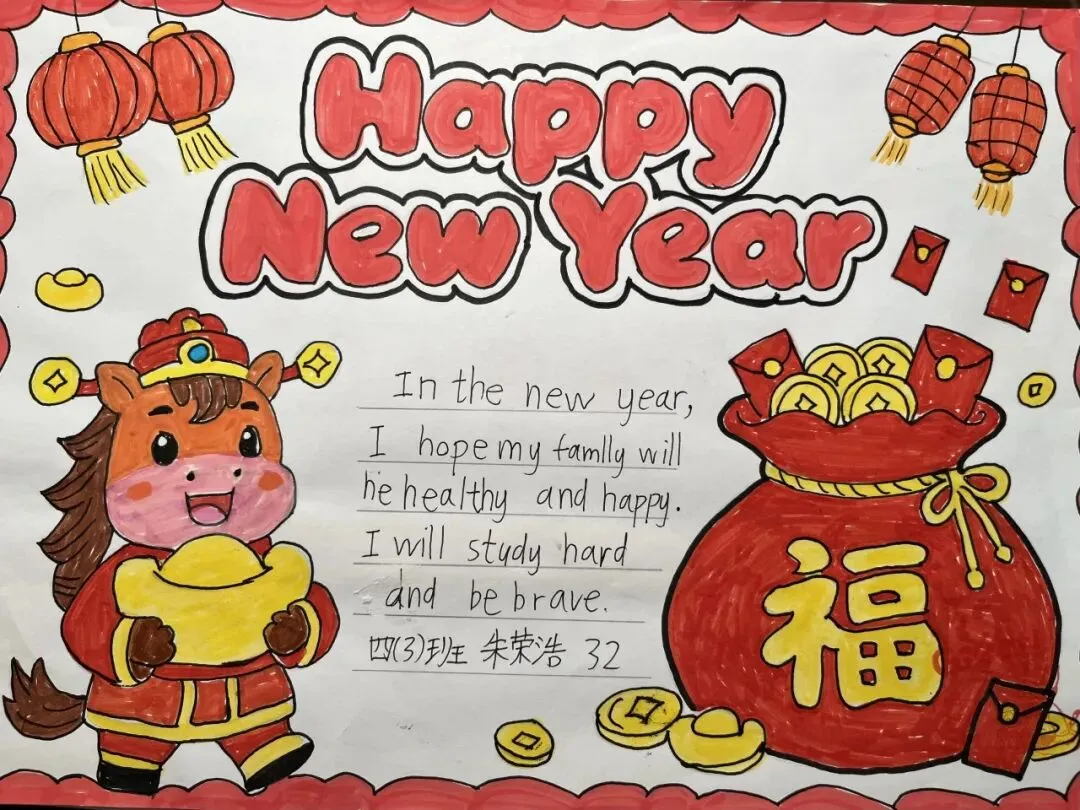 Happy
New Year
In the new year,
I hope my famlly will
he healthy and happy.
I will study hard
and be brave.
四(3)班 朱荣浩 32
福